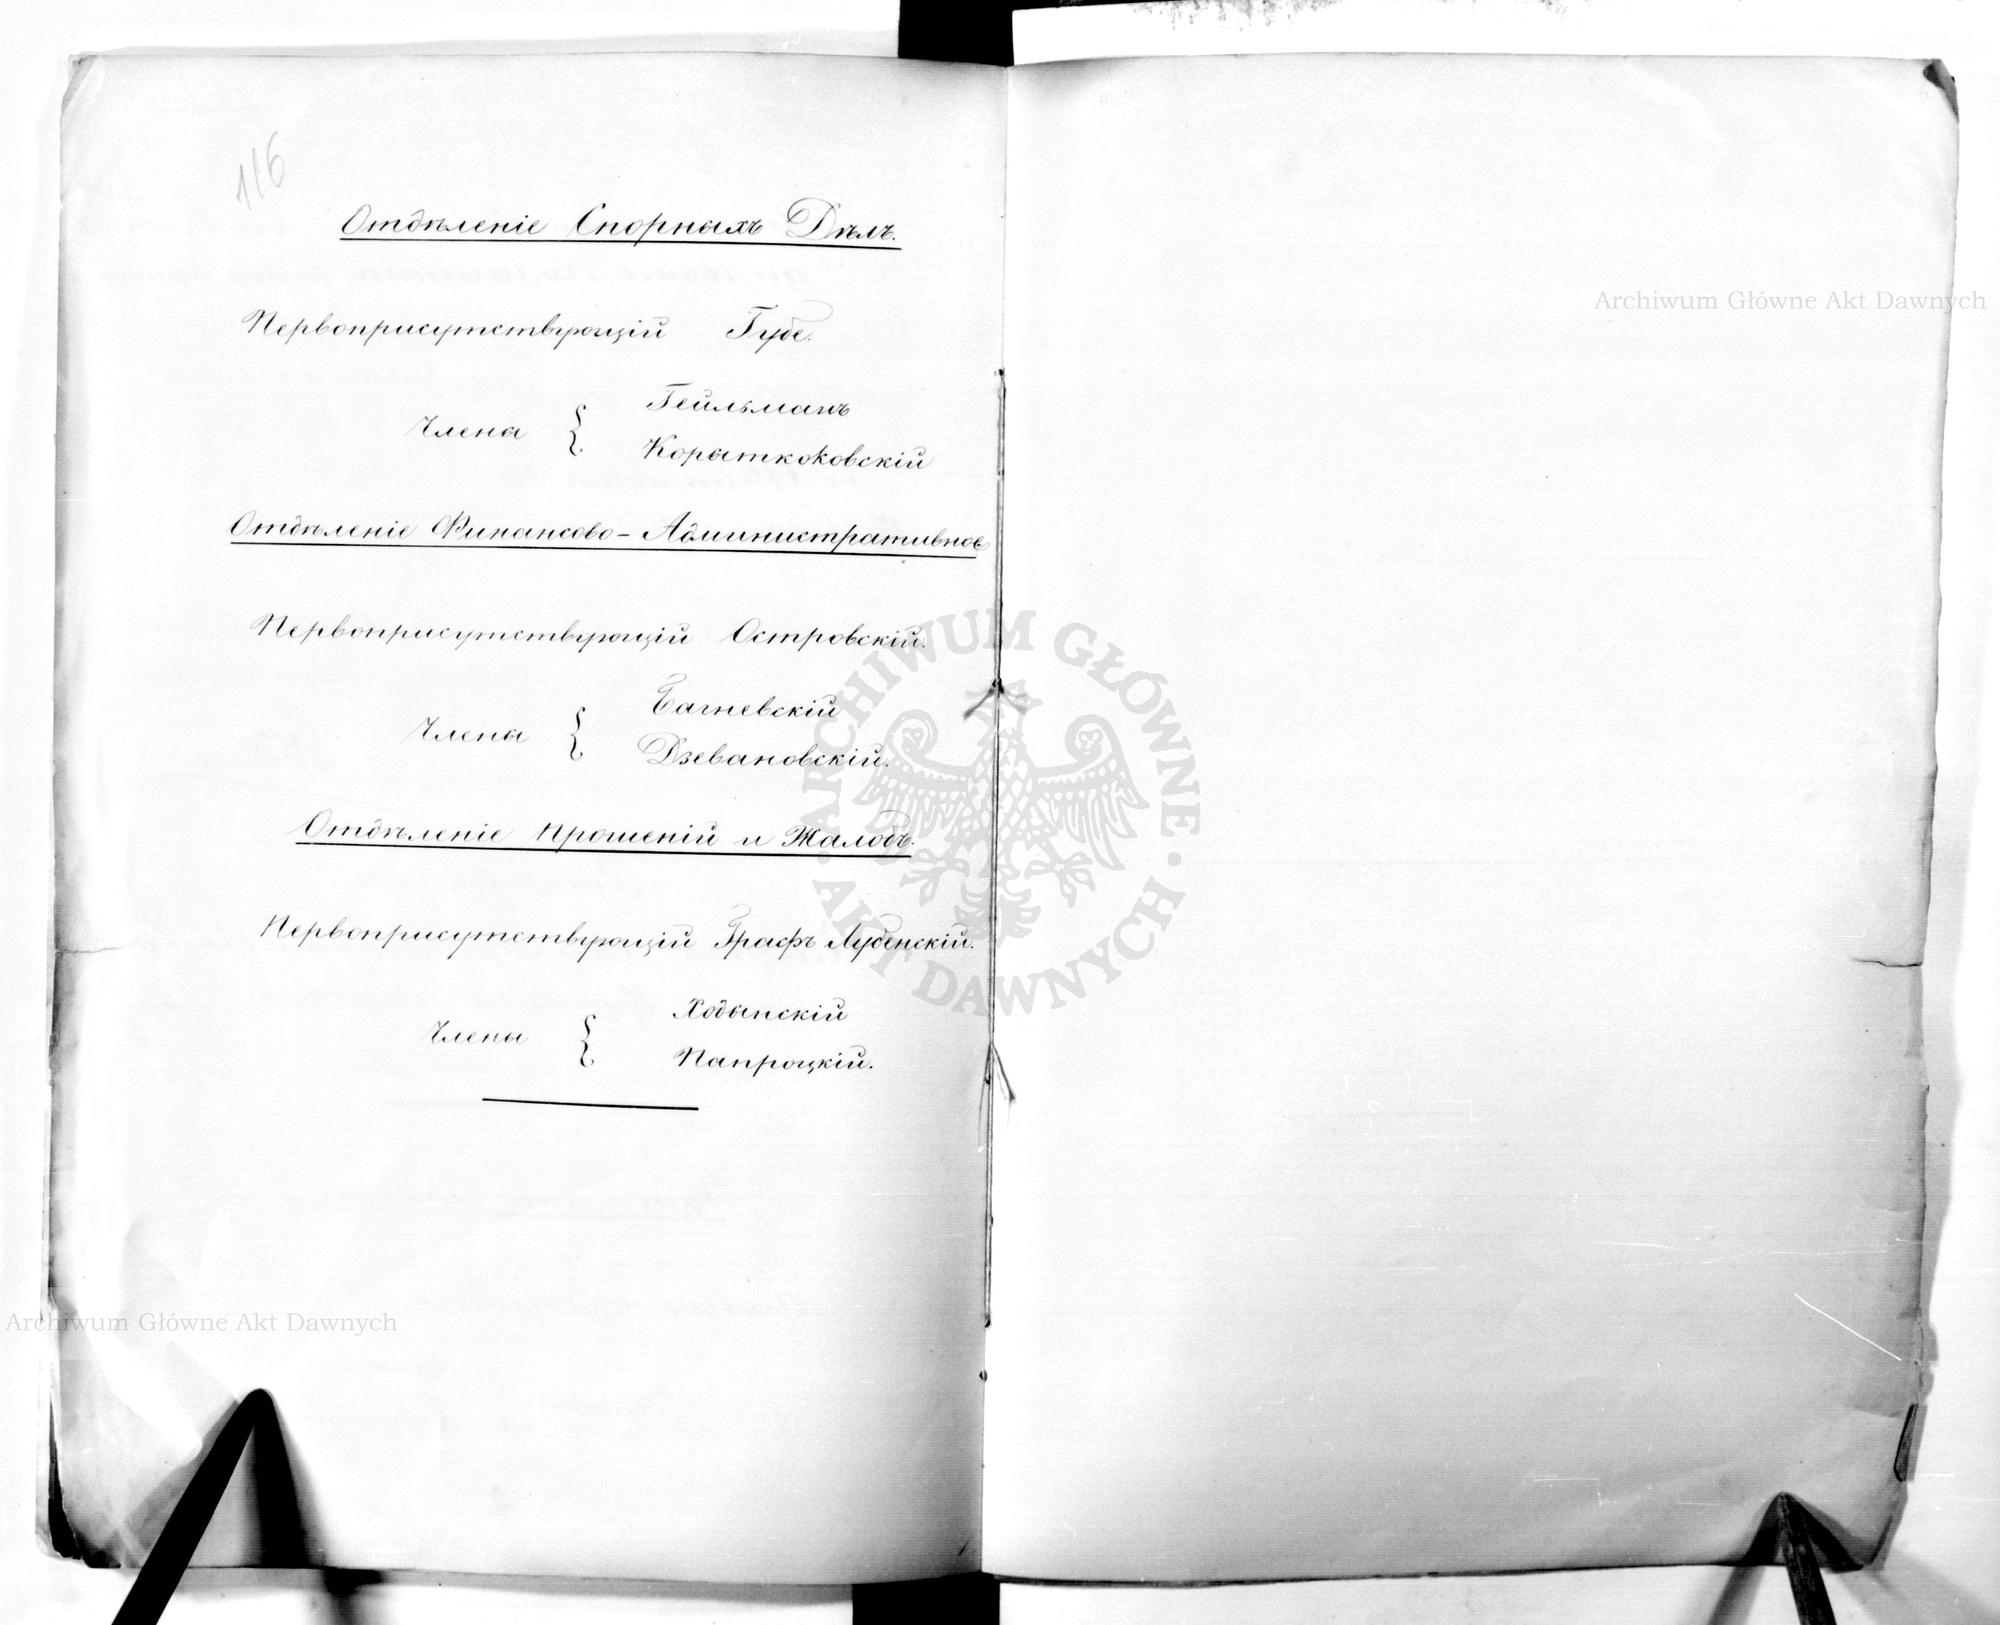 116
Отдѣленіе Спорныхъ Дѣлъ.
Первоприсутствующій Губе.
Члена { Гейльманъ
Корыткоковскій
Отдѣленіе Финансово-Административное
Первоприсутствующій Островскій.
Члены { Багневскій
Дзевановскій.
Отдѣленіе Прошеній и Жалобъ.
Первоприсутствующій Графъ Лубенскій.
Члены { Ходынскій
Папроцкій.
Archiwum Główne Akt Dawnych
Archiwum Główne Akt Dawnych
ARCHIWUM GŁÓWNE AKT DAWNYCH